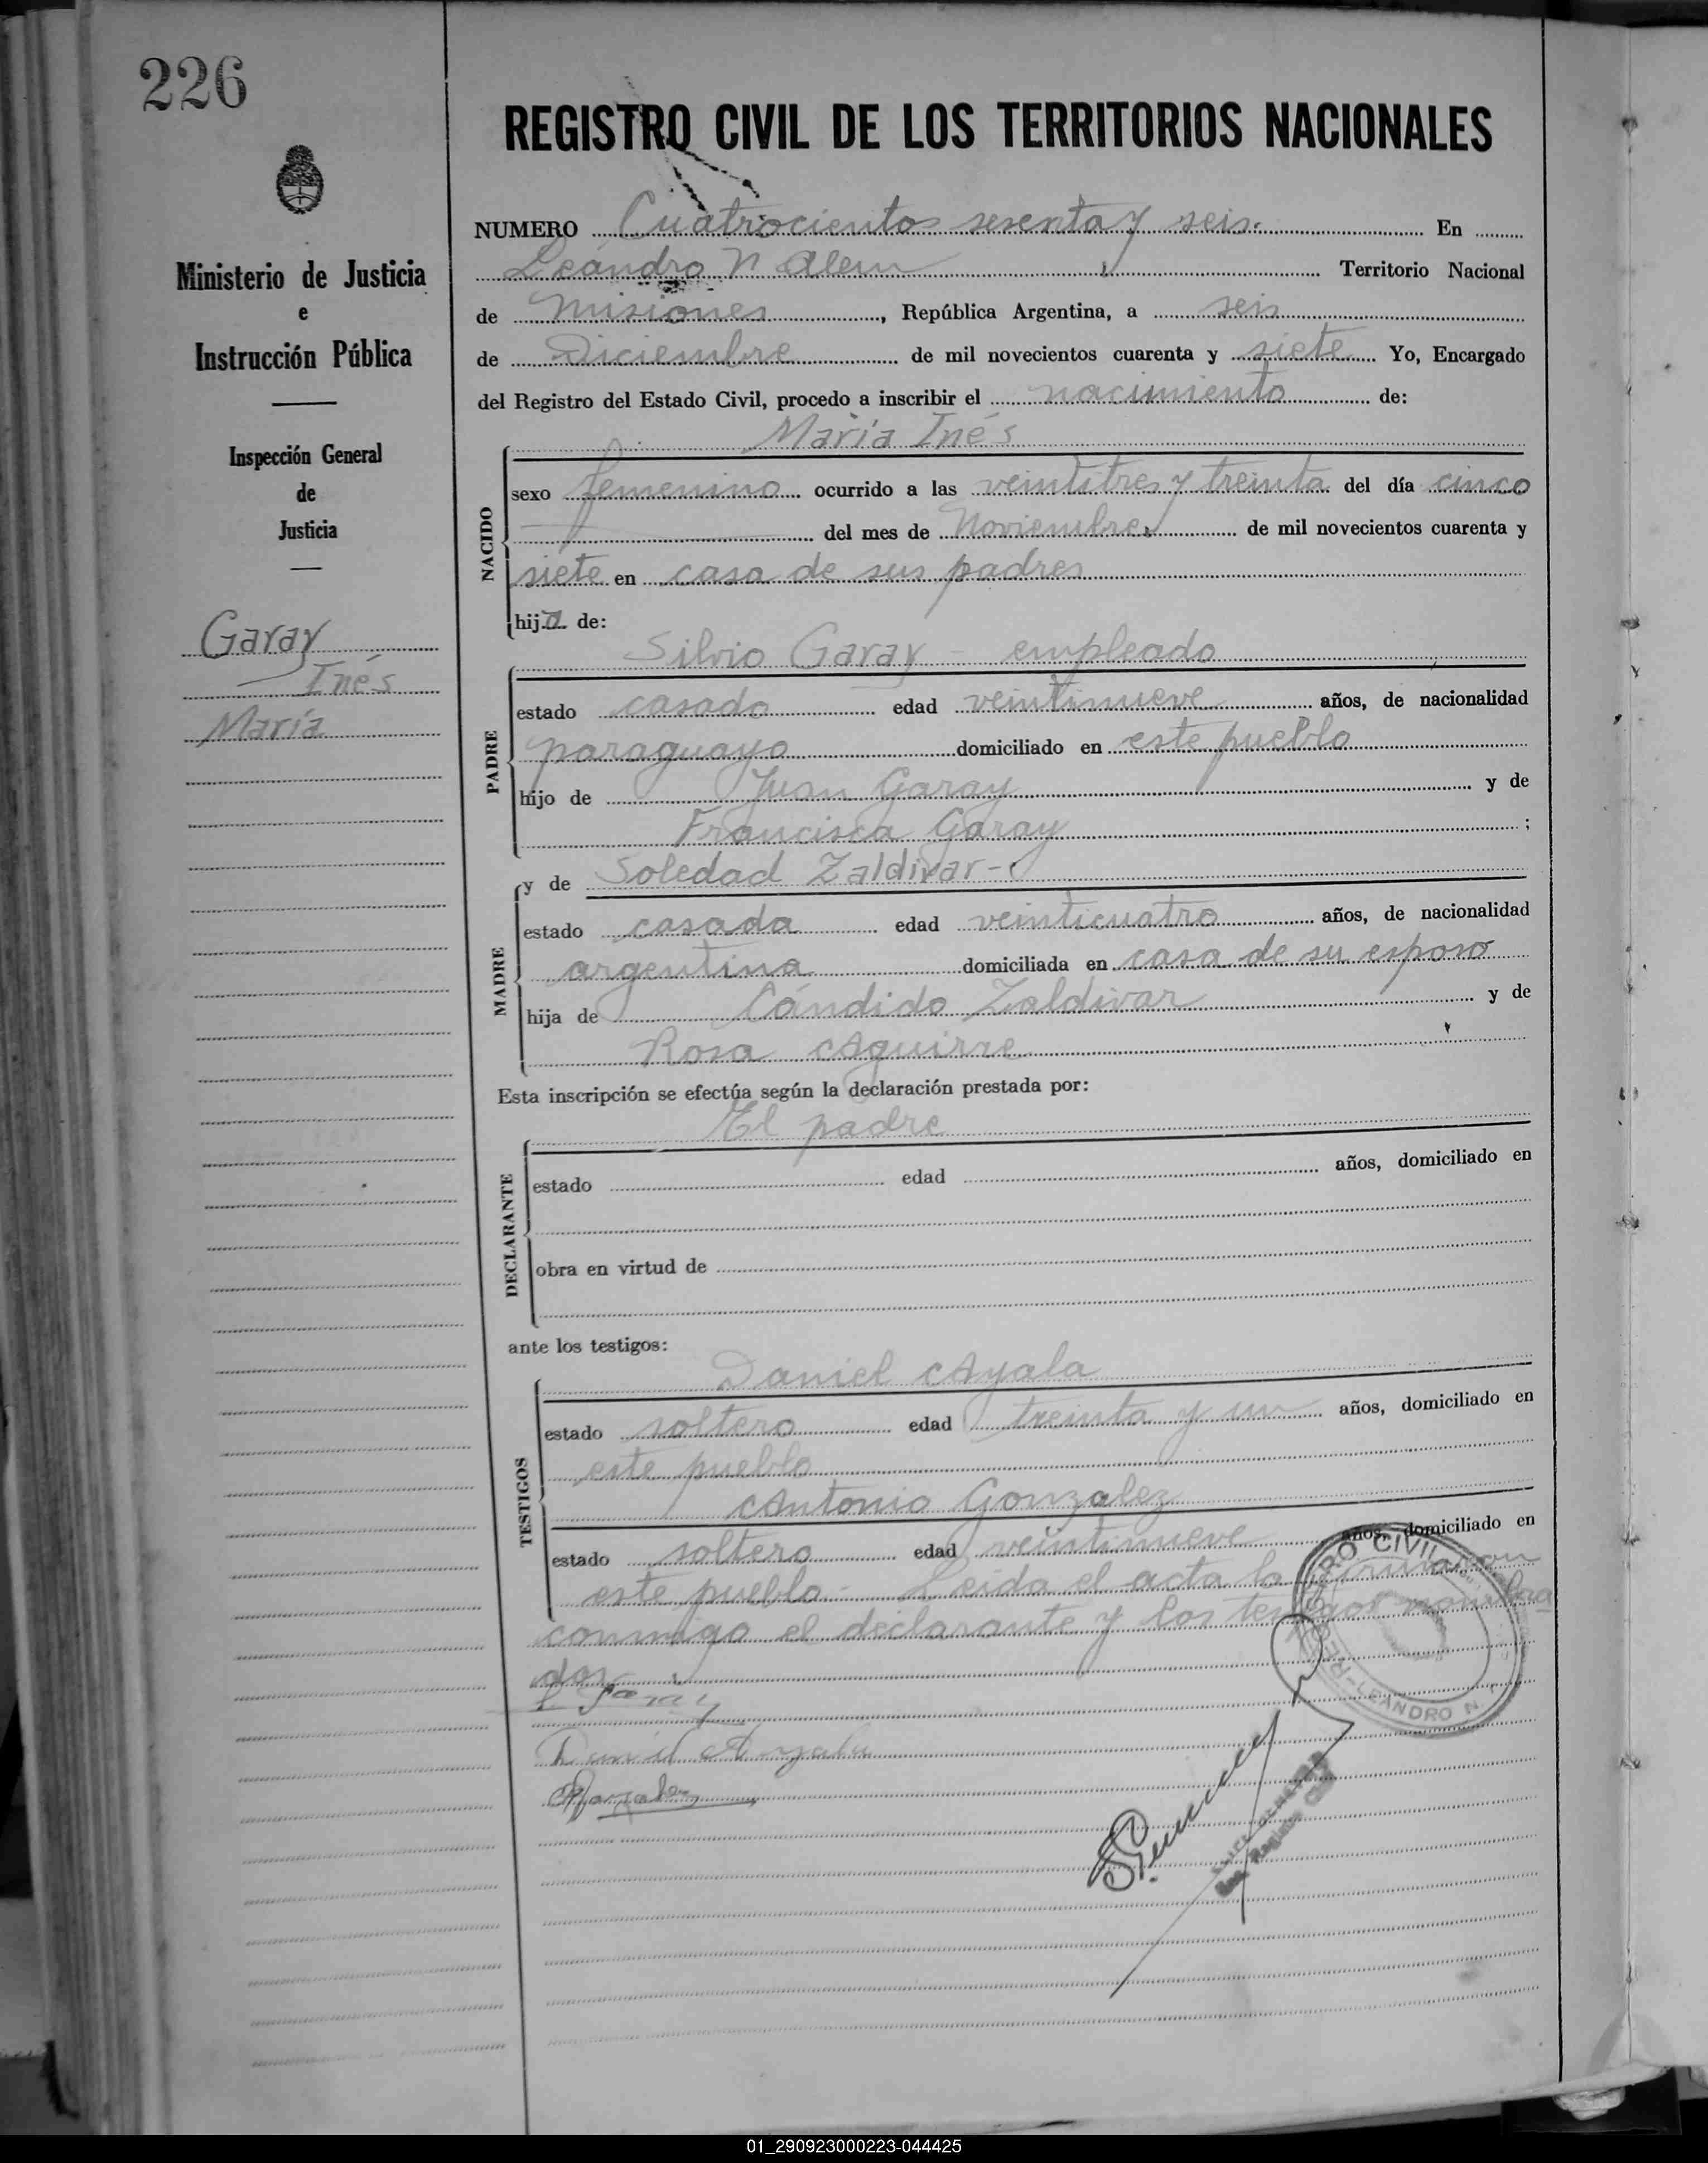 226
REGISTRO CIVIL DE LOS TERRITORIOS NACIONALES
Ministerio de Justicia
e
Instrucción Pública
Inspección General
de
Justicia
Garay
Inés
María
NUMERO Cuatrocientos sesenta y seis. En
Leandro N Alem Territorio Nacional
de Misiones, República Argentina, a seis
de Diciembre de mil novecientos cuarenta y siete Yo, Encargado
del Registro del Estado Civil, procedo a inscribir el nacimiento de:
María Inés
NACIDO
sexo femenino ocurrido a las veintitres y treinta del día cinco
del mes de Noviembre de mil novecientos cuarenta y
siete en casa de sus padres
hija de:
Silvio Garay - empleado
PADRE
estado casado edad veintinueve años, de nacionalidad
paraguayo domiciliado en este pueblo
hijo de Juan Garay y de
Francisca Garay ;
y de Soledad Zaldivar -
MADRE
estado casada edad veinticuatro años, de nacionalidad
argentina domiciliada en casa de su esposo
hija de Cándido Zaldivar y de
Rosa Aguirre
Esta inscripción se efectúa según la declaración prestada por:
El padre
DECLARANTE
estado edad años, domiciliado en
obra en virtud de
ante los testigos:
Daniel Ayala
TESTIGOS
estado soltero edad treinta y un años, domiciliado en
este pueblo
Antonio Gonzalez
estado soltero edad veintinueve años, domiciliado en
este pueblo - Leida el acta la firmaron
conmigo el declarante y los testigos nombra
dos
S Garay
Daniel Ayala
AGonzalez
REGISTRO CIVIL
LEANDRO N.
01_290923000223-044425